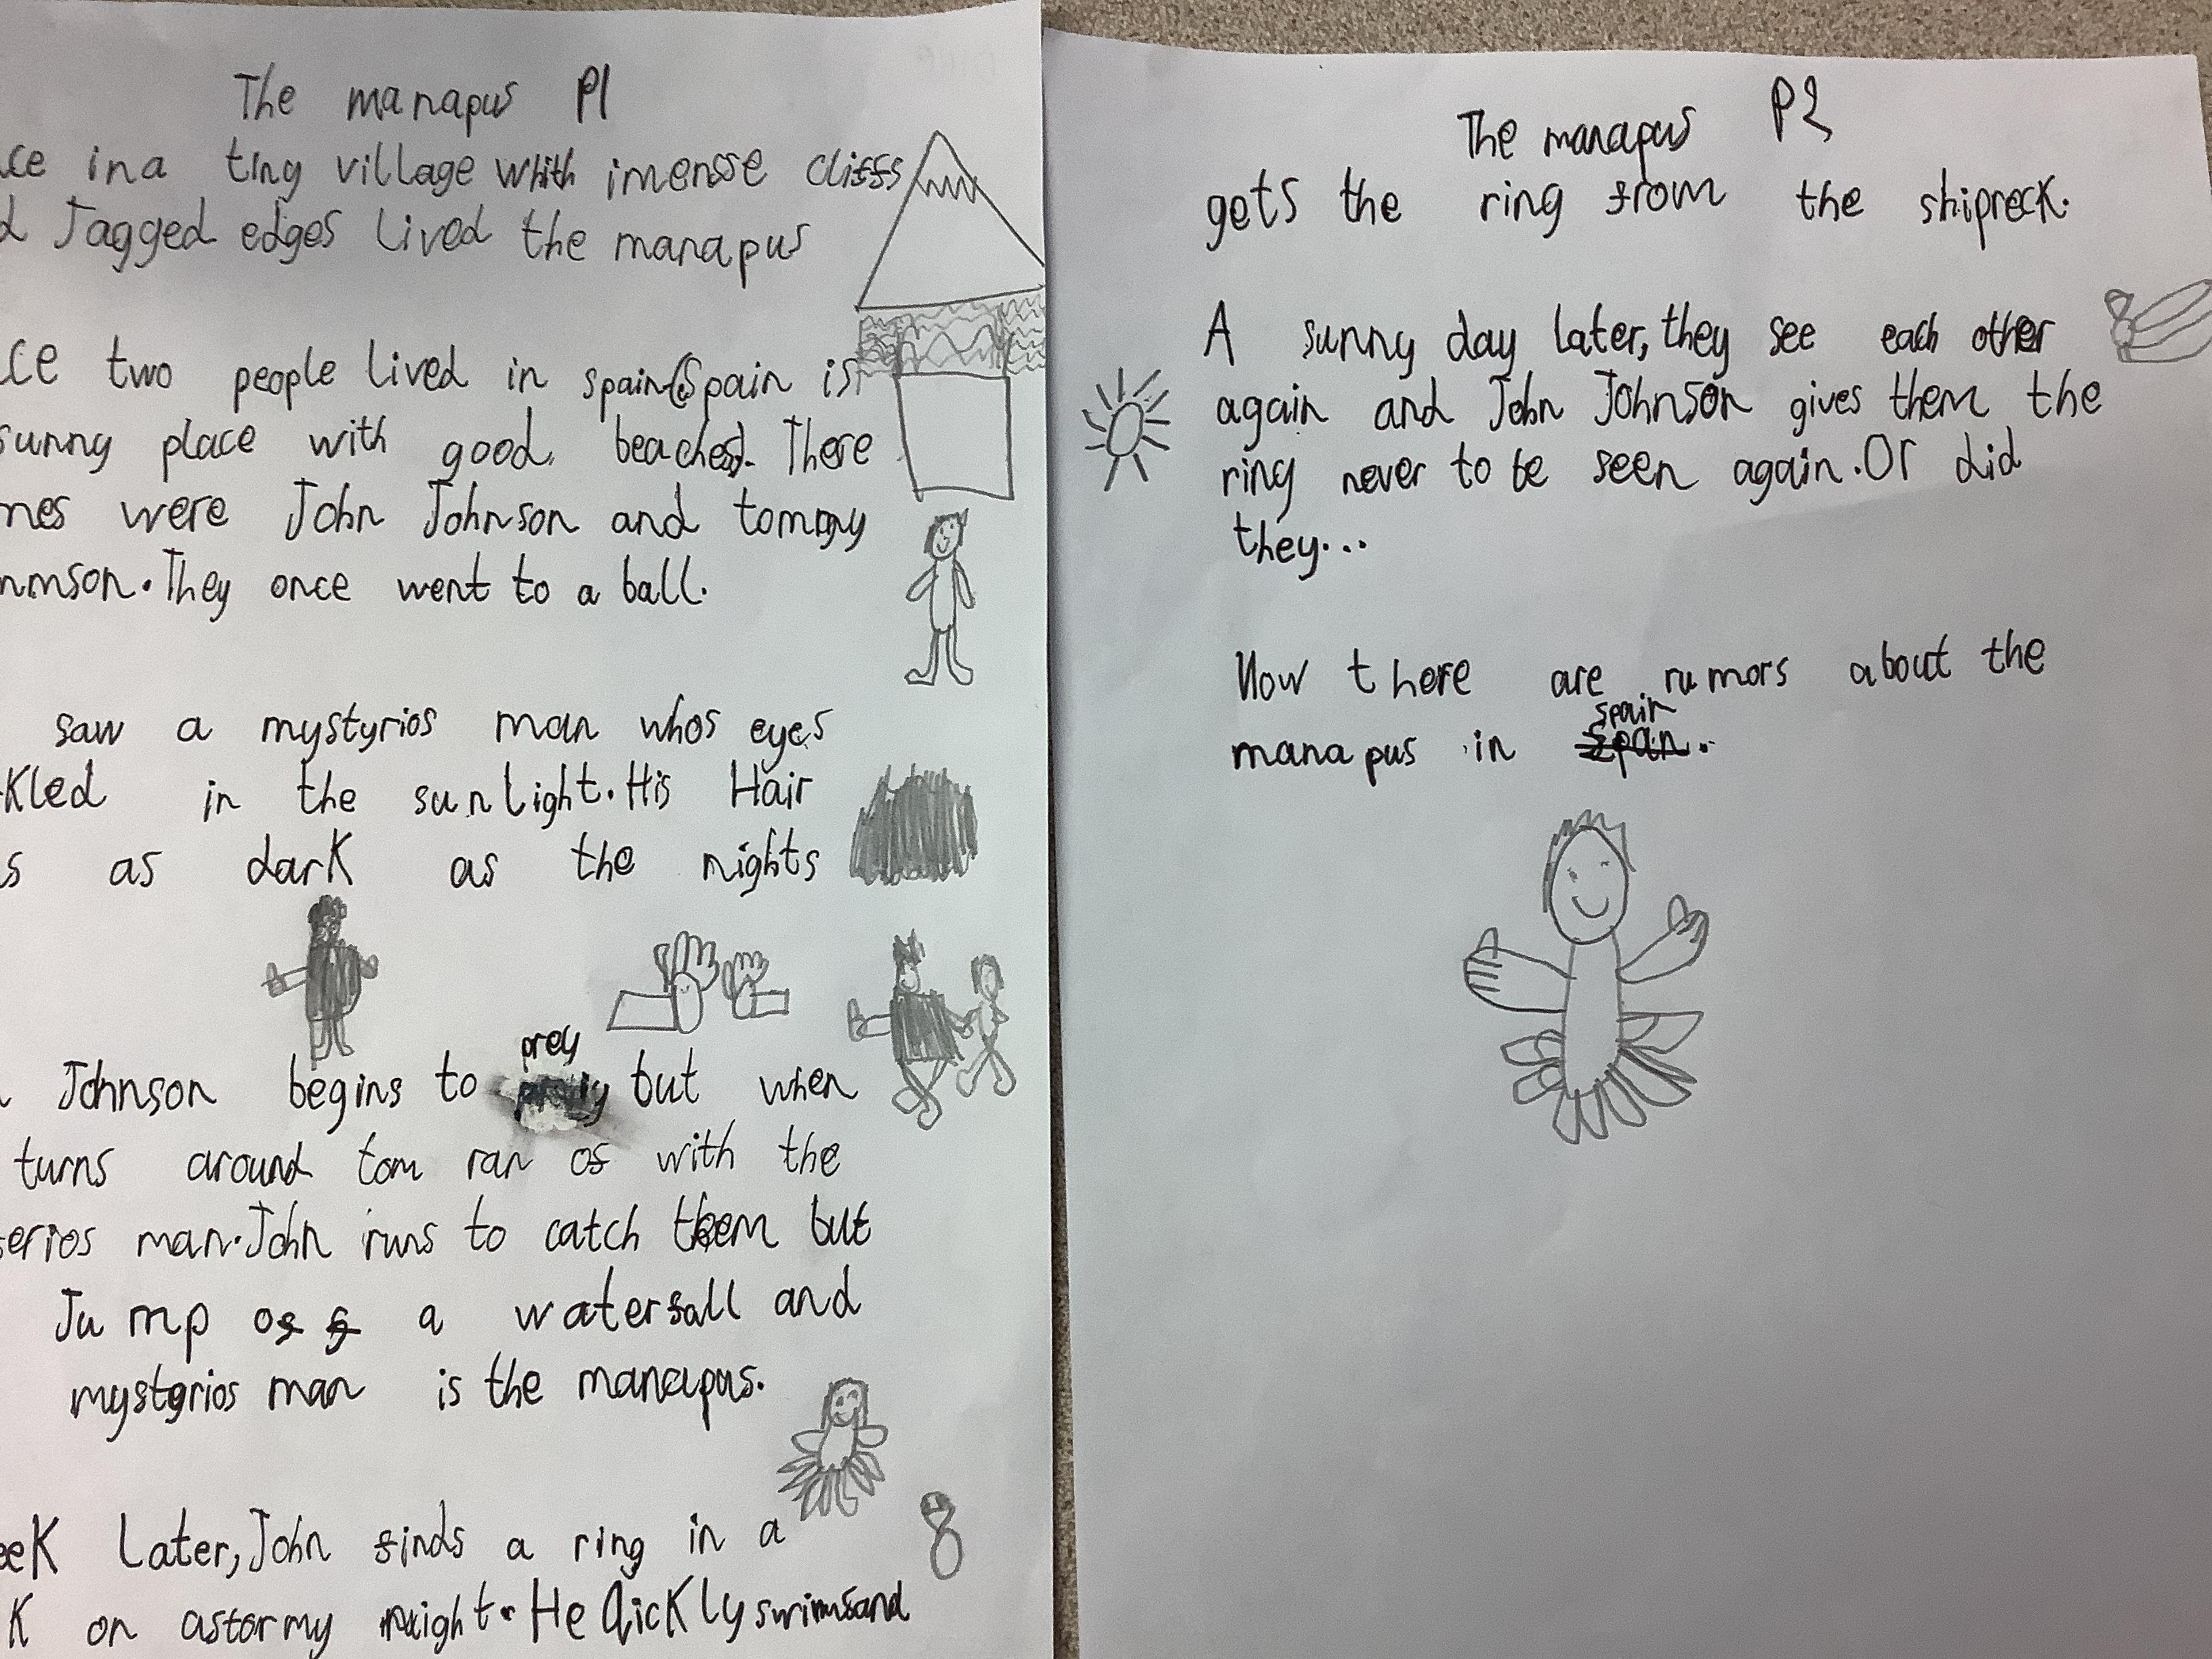 The manapus P1
ce in a tiny village whith imensse cliffs
d Jagged edges lived the manapus
ce two people lived in spain(Spain is
sunny place with good beaches). There
mes were John Johnson and tommy
mmson. They once went to a ball.
saw a mystyrios man whos eyes
kled in the sunlight. His Hair
s as dark as the nights
prey
Johnson begins to but when
turns around tom ran of with the
erios man. John runs to catch them but
Jump of a waterfall and
mysterios man is the manapus.
eek Later, John finds a ring in a
K on a stormy night. He Qickly swims and
The manapus P2
gets the ring from the shipreck.
A sunny day later, they see each other
again and John Johnson gives them the
ring never to be seen again. Or did
they...
Now there are rumors about the
spain
manapus in span.